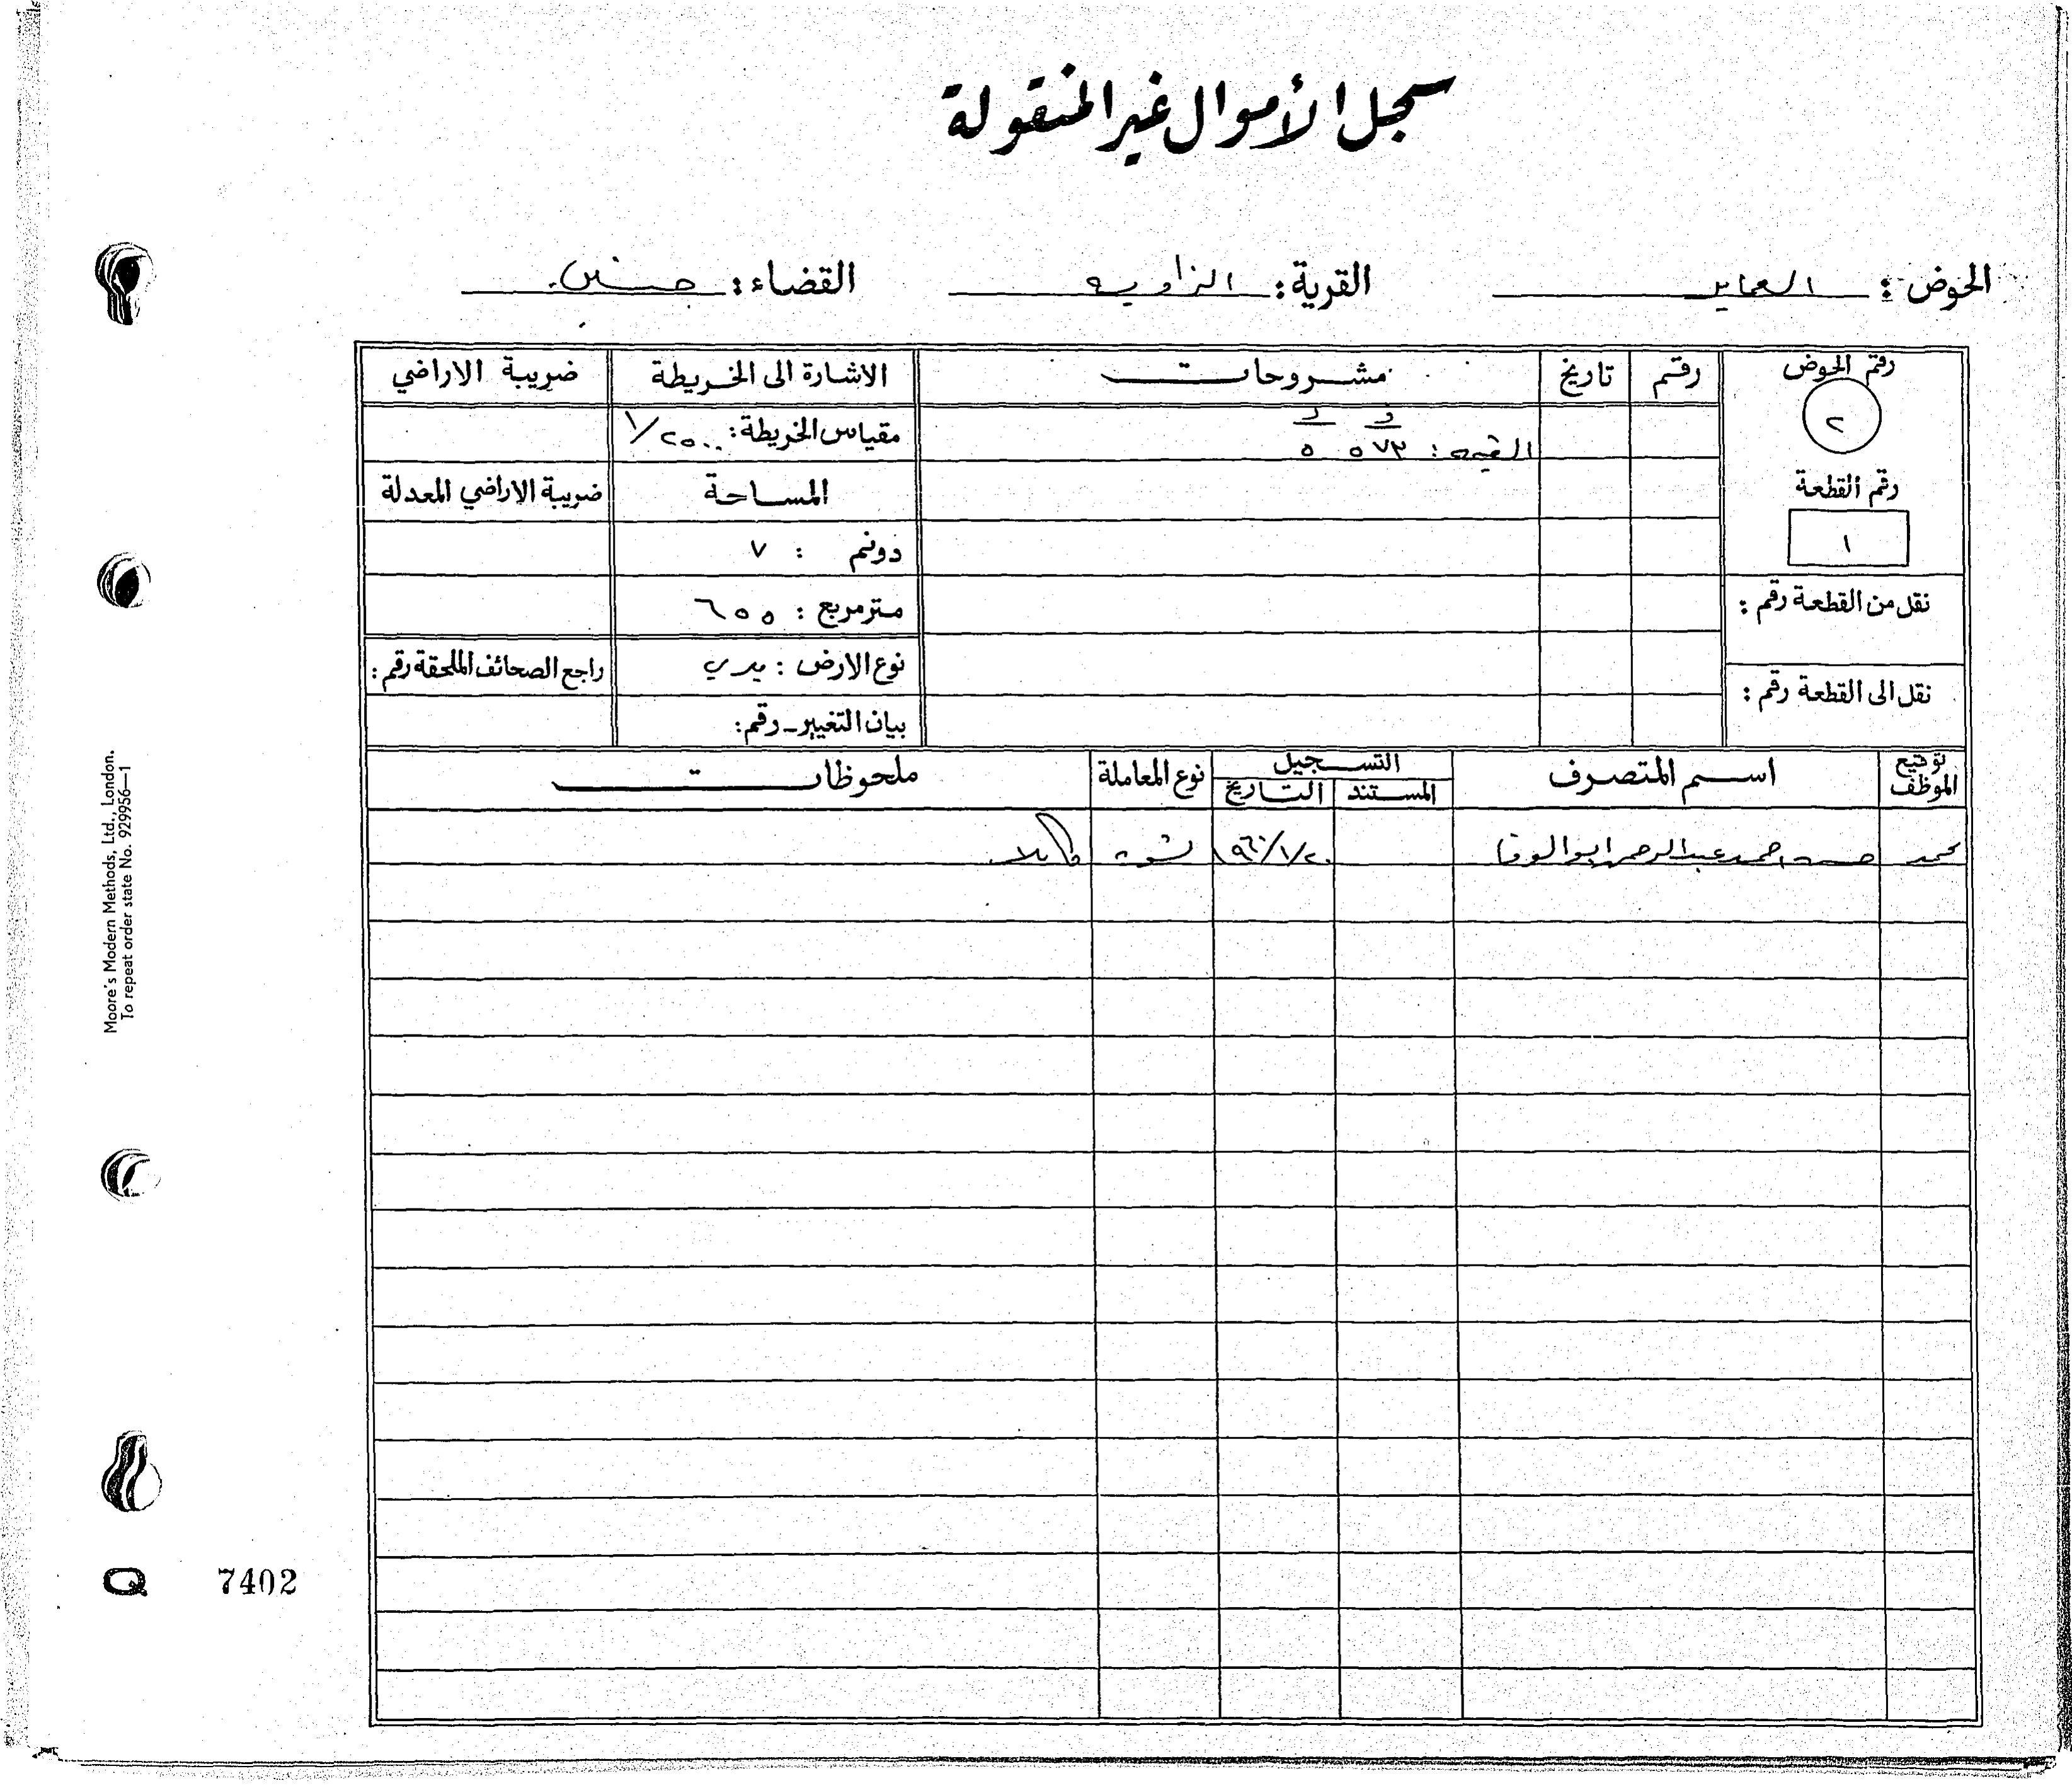 سجل الأموال غير المنقولة
الحوض : العماير القرية : الزاويه القضاء : جنين
رقم الحوض رقم تاريخ مشروحات الاشارة الى الخريطة ضريبة الاراضي
٢
د ف
القيمه : ٥٧٣ ٥
مقياس الخريطة : ١/٢٥٠٠
رقم القطعة
١
المساحة ضريبة الاراضي المعدلة
دونم : ٧
نقل من القطعة رقم :
متر مربع : ٦٥٥
نوع الارض : ميري راجع الصحائف الملحقة رقم :
نقل الى القطعة رقم :
بيان التغيير - رقم :
توقيع الموظف اسم المتصرف التسجيل نوع المعاملة ملحوظات
المستند التاريخ
محمد حسن احمد عبدالرحمن ابو الوفا ١٩٦٠/١/٢٠ تسوية كاملا
Moore's Modern Methods, Ltd., London.
To repeat order state No. 929956—1
Q 7402